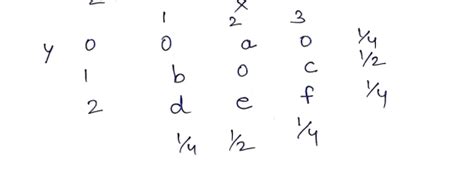 x
1 2 3
y 0 0 a 0 1/4
1 b 0 c 1/2
2 d e f 1/4
1/4 1/2 1/4